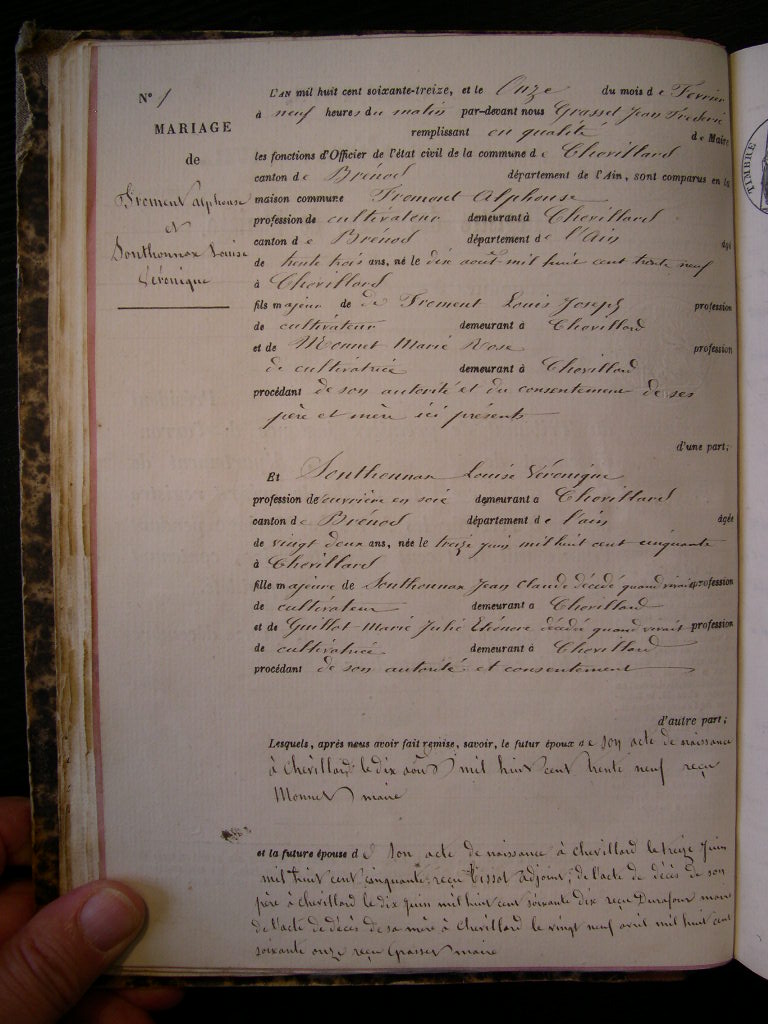 N° 1
MARIAGE
de
Froment alphonse
et
Sonthonnax Louise
Véronique
L'AN mil huit cent soixante-treize, et le Onze du mois de Février
à neuf heures du matin par-devant nous Grasset Jean Frédéric
remplissant en qualité de Maire
les fonctions d'Officier de l'état civil de la commune de Chevillard
canton de Brénod département de l'Ain, sont comparus en la
maison commune Froment Alphonse
profession de cultivateur demeurant à Chevillard
canton de Brénod département de l'Ain âgé
de trente trois ans, né le dix août mil huit cent trente neuf
à Chevillard
fils majeur de de Froment Louis Joseph profession
de cultivateur demeurant à Chevillard
et de Monnet Marie Rose profession
de cultivatrice demeurant à Chevillard
procédant de son autorité et du consentement de ses
père et mère ici présents
d'une part;
Et Sonthonnax Louise Véronique
profession de ouvrière en soie demeurant à Chevillard
canton de Brénod département de l'ain âgée
de vingt deux ans, née le treize juin mil huit cent cinquante
à Chevillard
fille majeure de Sonthonnax Jean Claude décédé quand vivait profession
de cultivateur demeurant à Chevillard
et de Guillot Marie Julie Eléonore décédée quand vivait profession
de cultivatrice demeurant à Chevillard
procédant de son autorité et consentement
d'autre part;
Lesquels, après nous avoir fait remise, savoir, le futur époux de son acte de naissance
à Chevillard le dix août mil huit cent trente neuf reçu
Monnet maire
et la future épouse d son acte de naissance à Chevillard le treize Juin
mil huit cent cinquante, reçu Tissot adjoint; de l'acte de décès de son
père à Chevillard le dix juin mil huit cent soixante dix reçu Durafour maire
de l'acte de décès de sa mère à Chevillard le vingt neuf avril mil huit cent
soixante onze reçu Grasset maire
TIMBRE